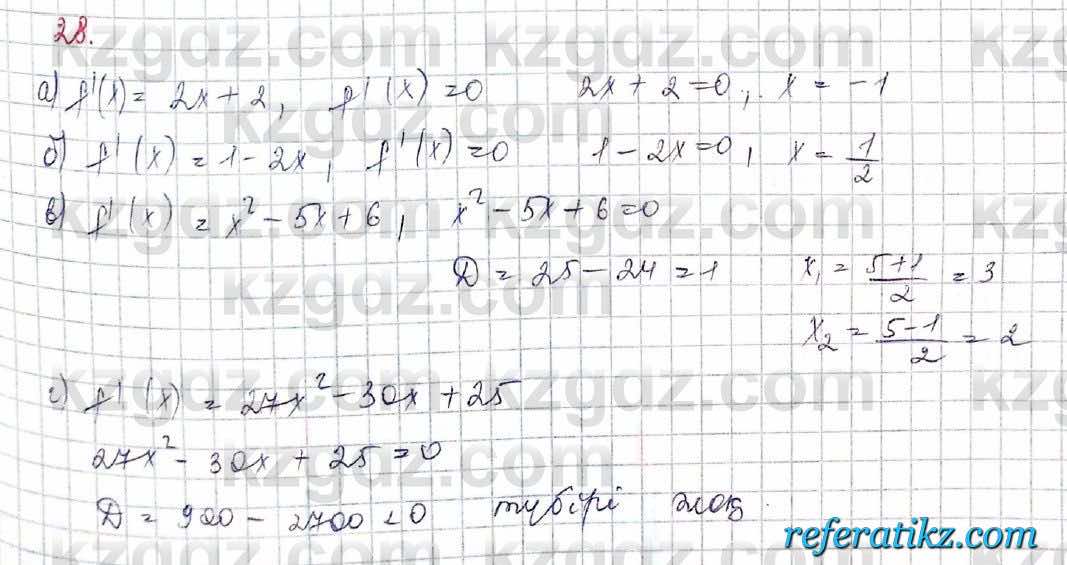 28.
а) f'(x) = 2x + 2, f'(x) = 0 2x + 2 = 0, x = -1
б) f'(x) = 1 - 2x, f'(x) = 0 1 - 2x = 0, x = 1/2
в) f'(x) = x² - 5x + 6, x² - 5x + 6 = 0
D = 25 - 24 = 1 x₁ = (5+1)/2 = 3
x₂ = (5-1)/2 = 2
г) f'(x) = 27x² - 30x + 25
27x² - 30x + 25 = 0
D = 900 - 2700 < 0 түбірі жоқ.
kzgdz.com
referatikz.com